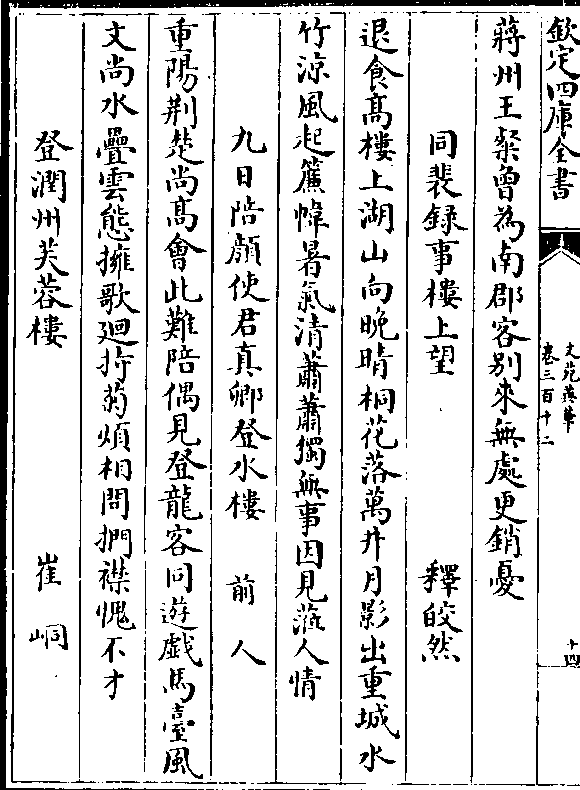 欽定四庫全書
文苑英華
卷三百十二
十四
蔣州王粲曾為南郡客别來無處更銷憂
同裴録事樓上望 釋皎然
退食髙樓上湖山向晚晴桐花落萬井月影出重城水
竹涼風起簾幃暑氣清蕭蕭獨無事因見蒞人情
九日陪顔使君真卿登水樓 前人
重陽荆楚尚髙會此難陪偶見登龍客同遊戯馬臺風
文向水疊雲態擁歌廻持菊煩相問捫襟愧不才
登潤州芙蓉樓 崔峒